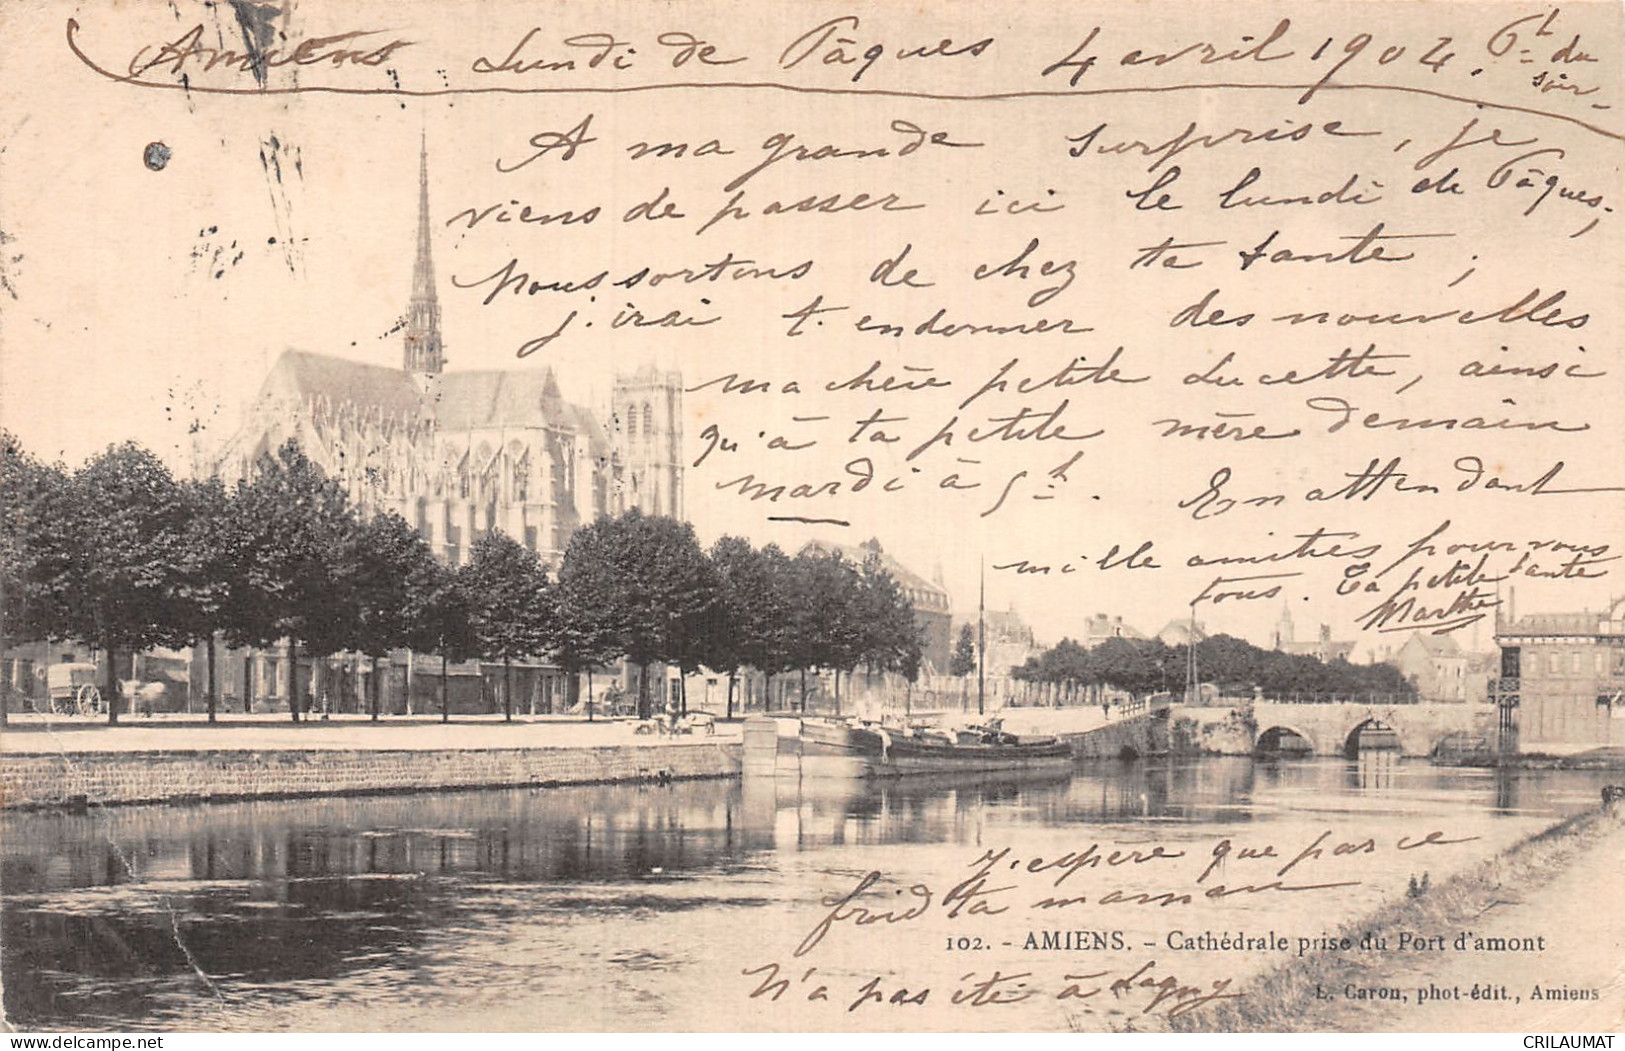 Amiens Lundi de Pâques 4 avril 1904. 6h du
soir -
A ma grande surprise, je
viens de passer ici le lundi de Pâques,
Nous sortons de chez ta tante ;
j'irai t'en donner des nouvelles
ma chère petite Lucette, ainsi
qu'à ta petite mère demain
mardi à 5h. En attendant
mille amitiés pour vous
tous. Ta petite tante
Marthe
J'espère que par ce
froid ta maman
n'a pas été à Lagny
102. - AMIENS. - Cathédrale prise du Port d'amont
L. Caron, phot-édit., Amiens
delcampe.net
CRILAUMAT